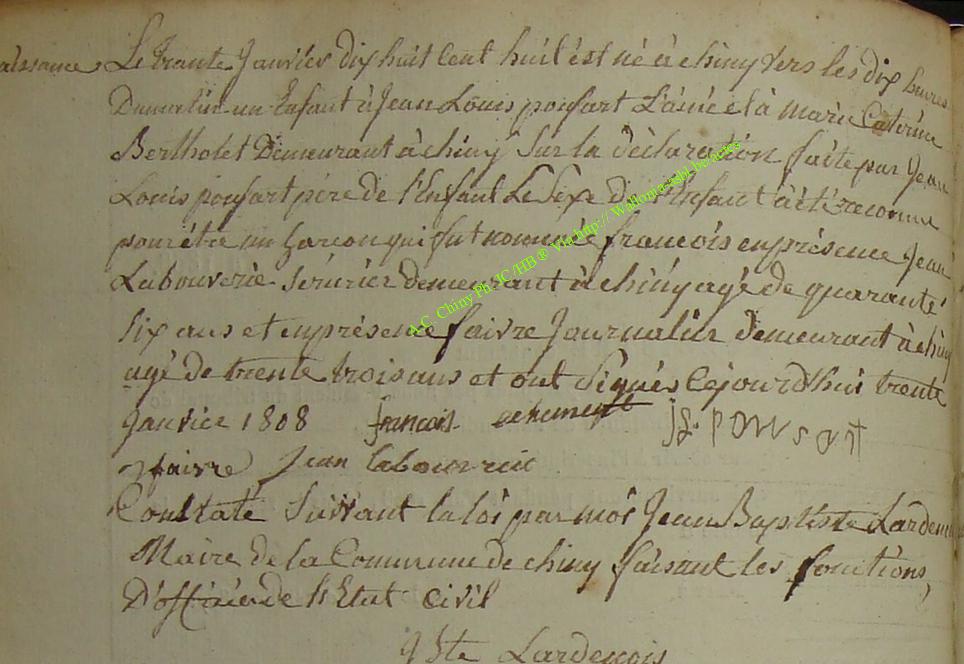 aissance Le trante Janvier dix huit Cent huit est né à chiny vers les dix heures
Dumatin un Enfant à Jean Louis ponsart L'ainé et à marie Caterine
Bertholet Demeurant à chiny Sur la déclaration faite par Jean
Louis ponsart pére de l'Enfant Le Sexe de l'Enfant à été reconnu
pour étre un Garcon qui fut nommée francois en présence Jean
Labouverie Sérurier demeurant à chiny agé de quarante
Six ans et en présence faivre Journalier demeurant à chiny
agé de trente trois ans et ont Signés Cejourd'hui trente
Janvier 1808 francois
A.C. Chiny Ph. JC/HB ® Via http://
faivre Jean Labouverie
Constaté Suivant la loi par moi Jean Baptiste Lardenois
Maire de la Commune de chiny faisant les fonctions
D'officier de l'Etat Civil
Lardenois